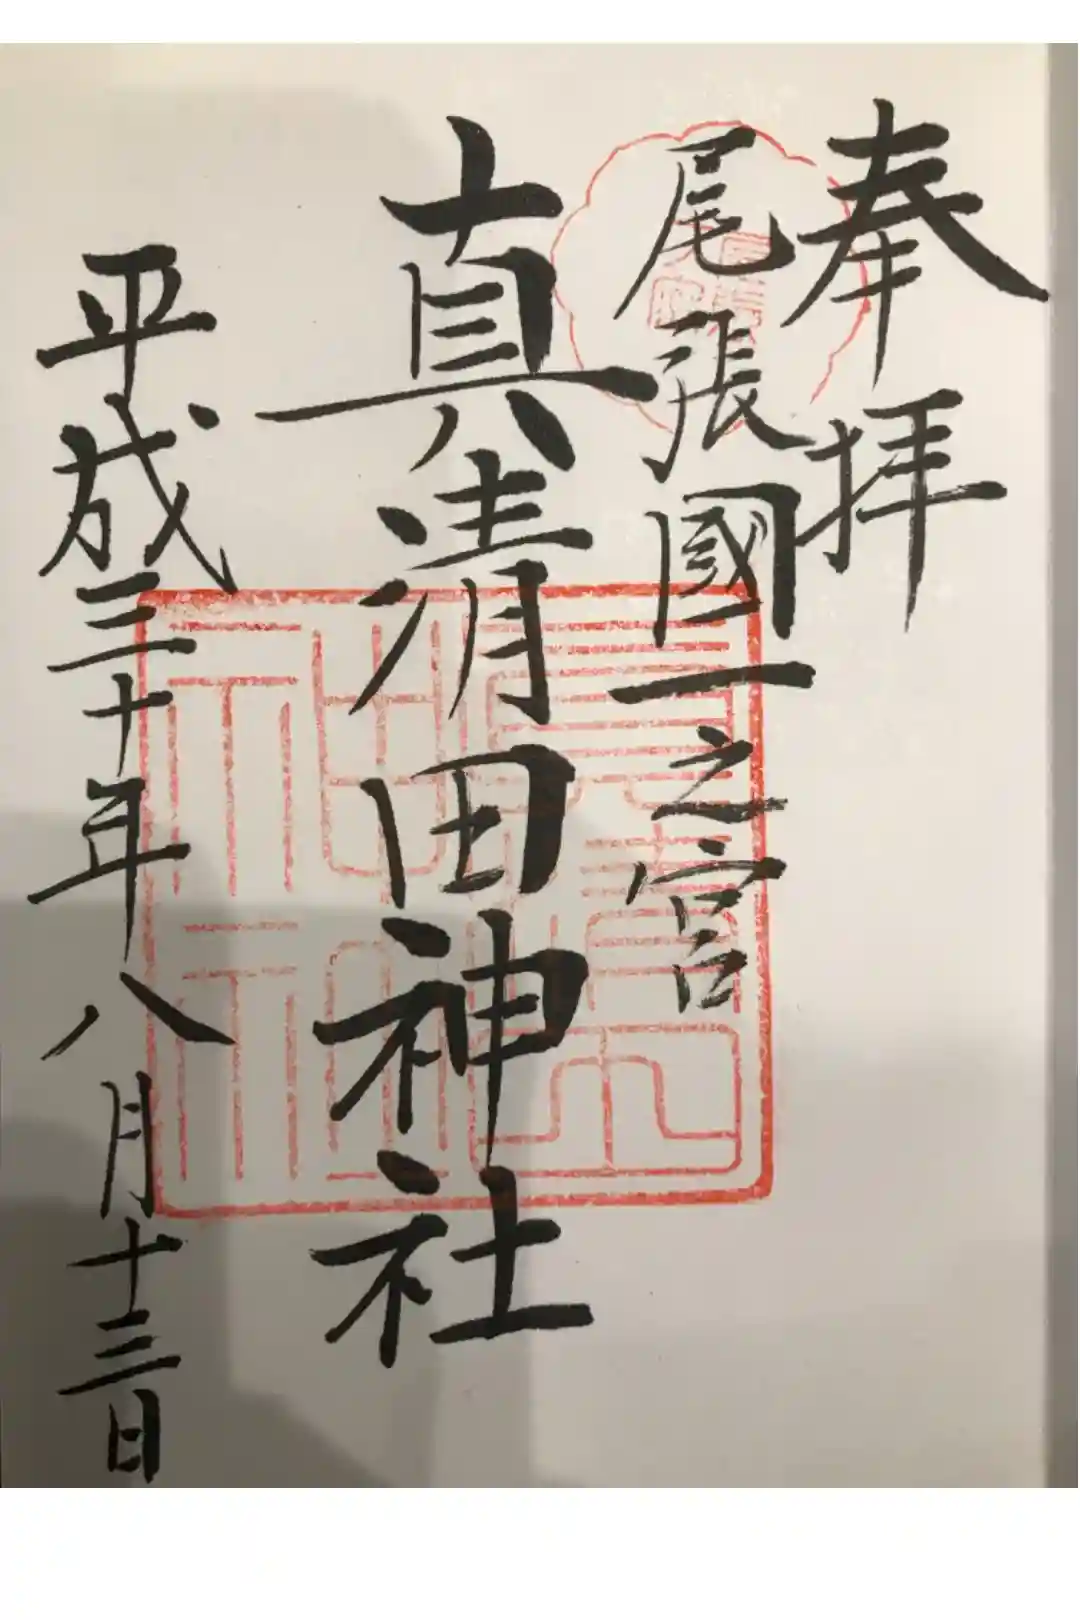 奉拝
尾張國一之宮
真清田神社
平成三十年八月十三日